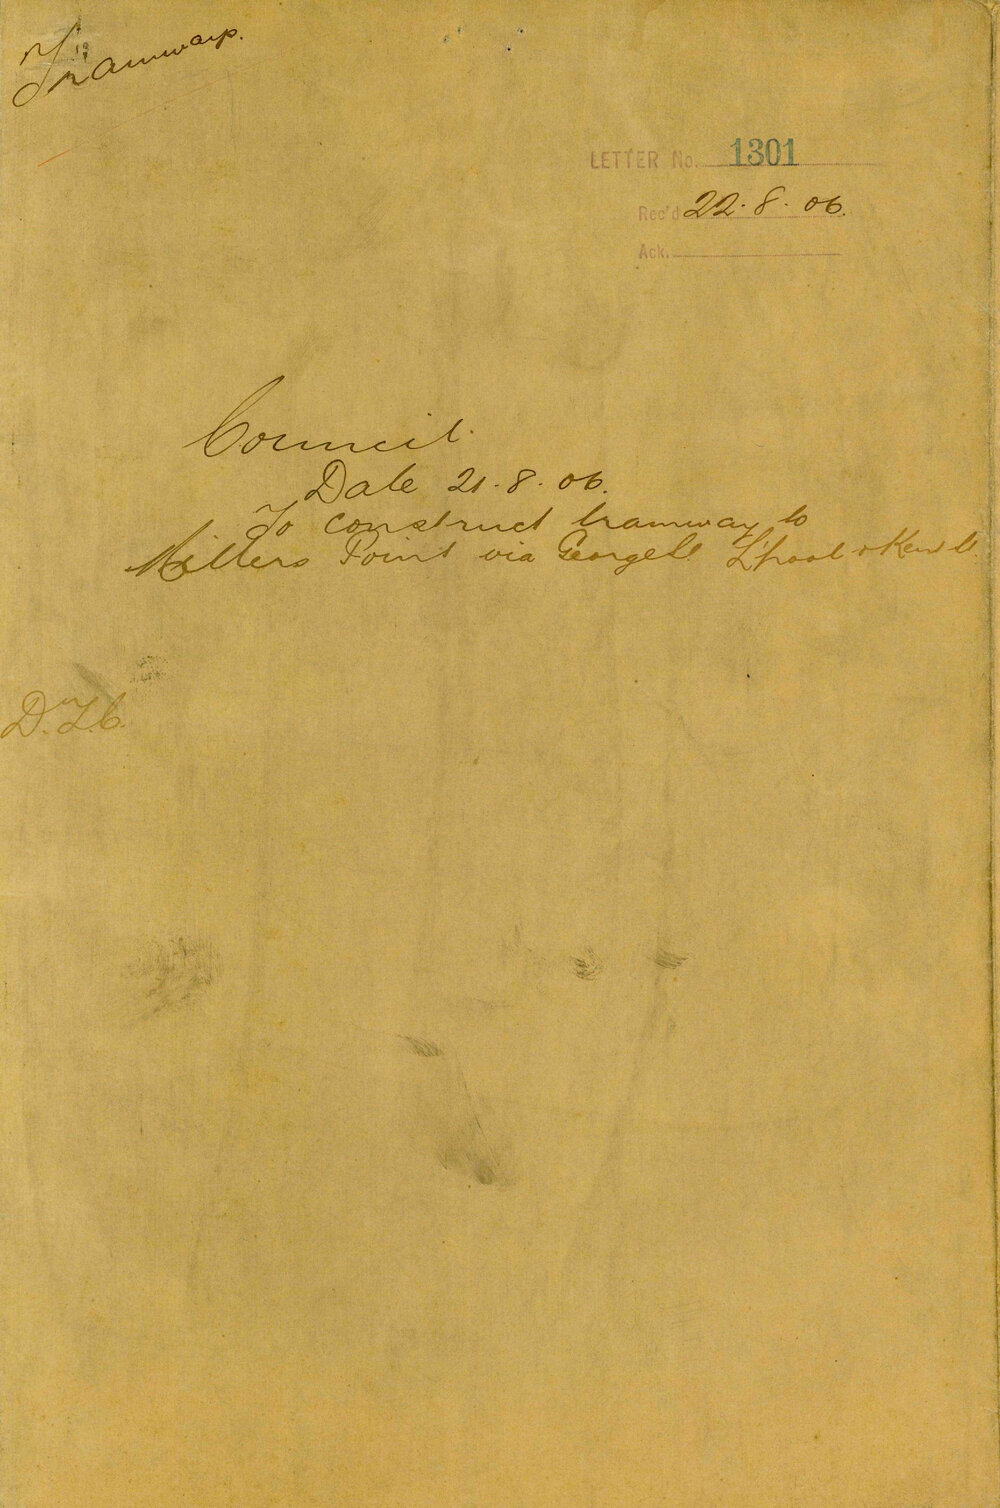 Tramways.
LETTER No. 1301
Rec'd 22.8.06.
Ack.
Council.
Date 21.8.06.
To construct tramway to
Millers Point via George St L'pool & Kent St